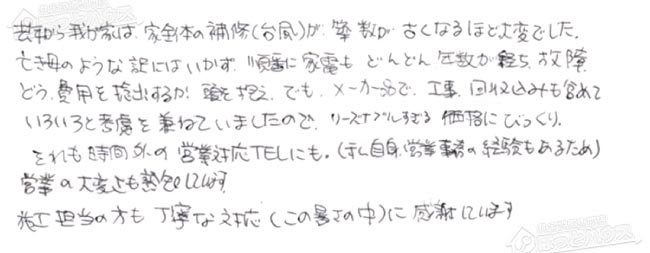 去年から我が家は、家全体の補修(台風)が、築数が古くなるほど大変でした。
亡き母のような訳にはいかず、順番に家電もどんどん年数が経ち、故障
どう費用を捻出するか 頭を抱え、でも、メーカー品で、工事、回収込みも含めて
いろいろと考慮を兼ねていましたので、リーズナブルすぎる価格にびっくり。
それも時間外の営業対応TELにも。(私自身、営業事務の経験もあるため)
営業の大変さも熟知しています
施工担当の方も丁寧な対応(この暑さの中)に感謝しています